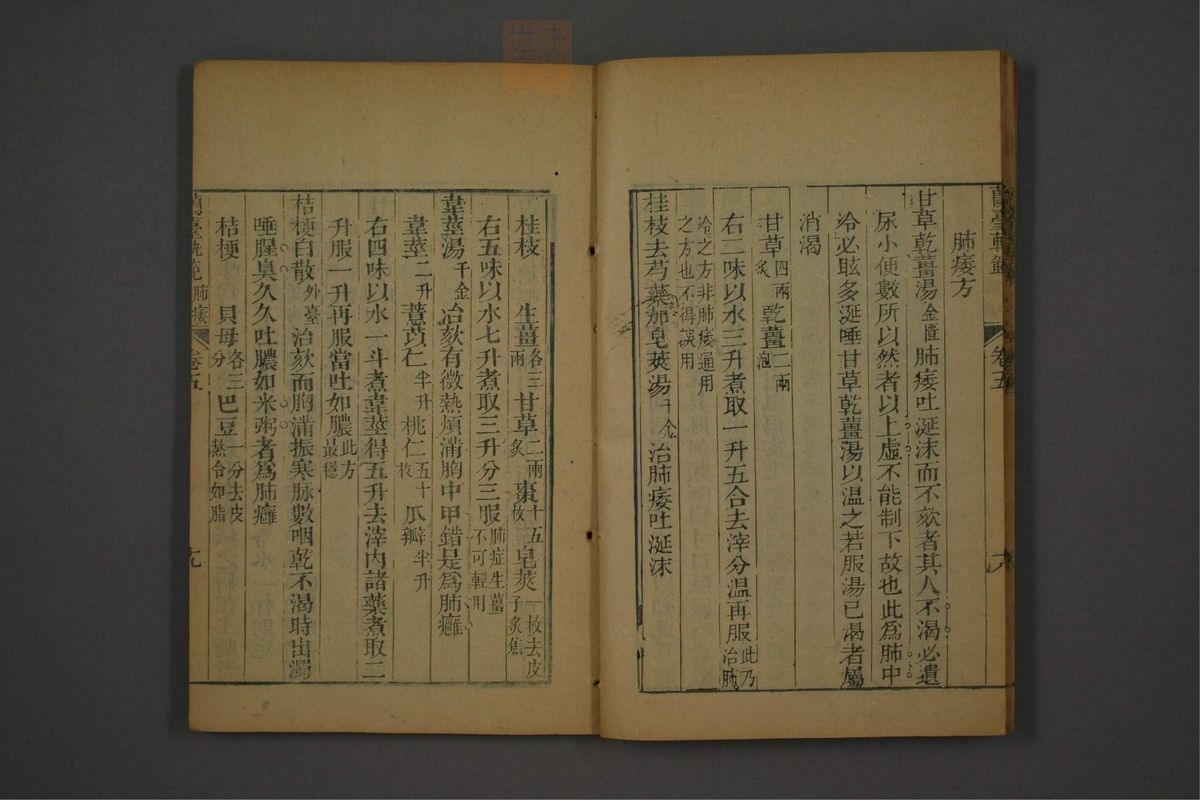 肺痿方
甘草乾薑湯金匱肺痿吐涎沫而不欬者其人不渴必遺
尿小便數所以然者以上虛不能制下故也此為肺中
冷必眩多涎唾甘草乾薑湯以温之若服湯已渴者屬
消渴
甘草四兩炙乾薑二兩泡
右二味以水三升煮取一升五合去滓分温再服此乃治肺
冷之方非肺痿通用之方也不得誤用
桂枝去芍藥加皂莢湯千金治肺痿吐涎沫
桂枝 生薑各三兩甘草二兩炙棗十五枚皂莢一枚去皮子炙焦
右五味以水七升煮取三升分三服肺症生薑不可輕用
葦莖湯千金治欬有微熱煩滿胸中甲錯是為肺癰
葦莖二升薏苡仁半升桃仁五十枚瓜瓣半升
右四味以水一斗煮葦莖得五升去滓内諸藥煮取二
升服一升再服當吐如膿此方最穩
桔梗白散外臺治欬而胸滿振寒脉數咽乾不渴時出濁
唾腥臭久久吐膿如米粥者為肺癰
桔梗 貝母各三分巴豆一分去皮熬令如脂
肺痿
卷五
卷五
九